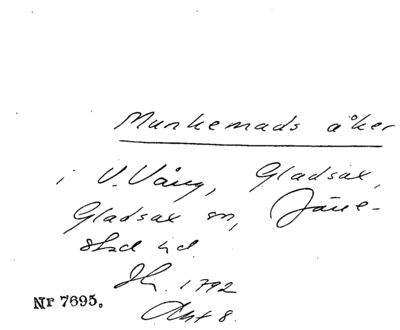 Munkemads åker
i V. Vång, Gladsax,
Gladsax sn, Järre-
stad hd.
Sk. 1792
Akt 8.
Nr 7695.